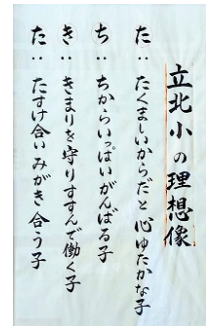 立北小の理想像
た：たくましいからだと心ゆたかな子
ち：ちからいっぱいがんばる子
き：きまりを守りすすんで働く子
た：たすけ合いみがき合う子